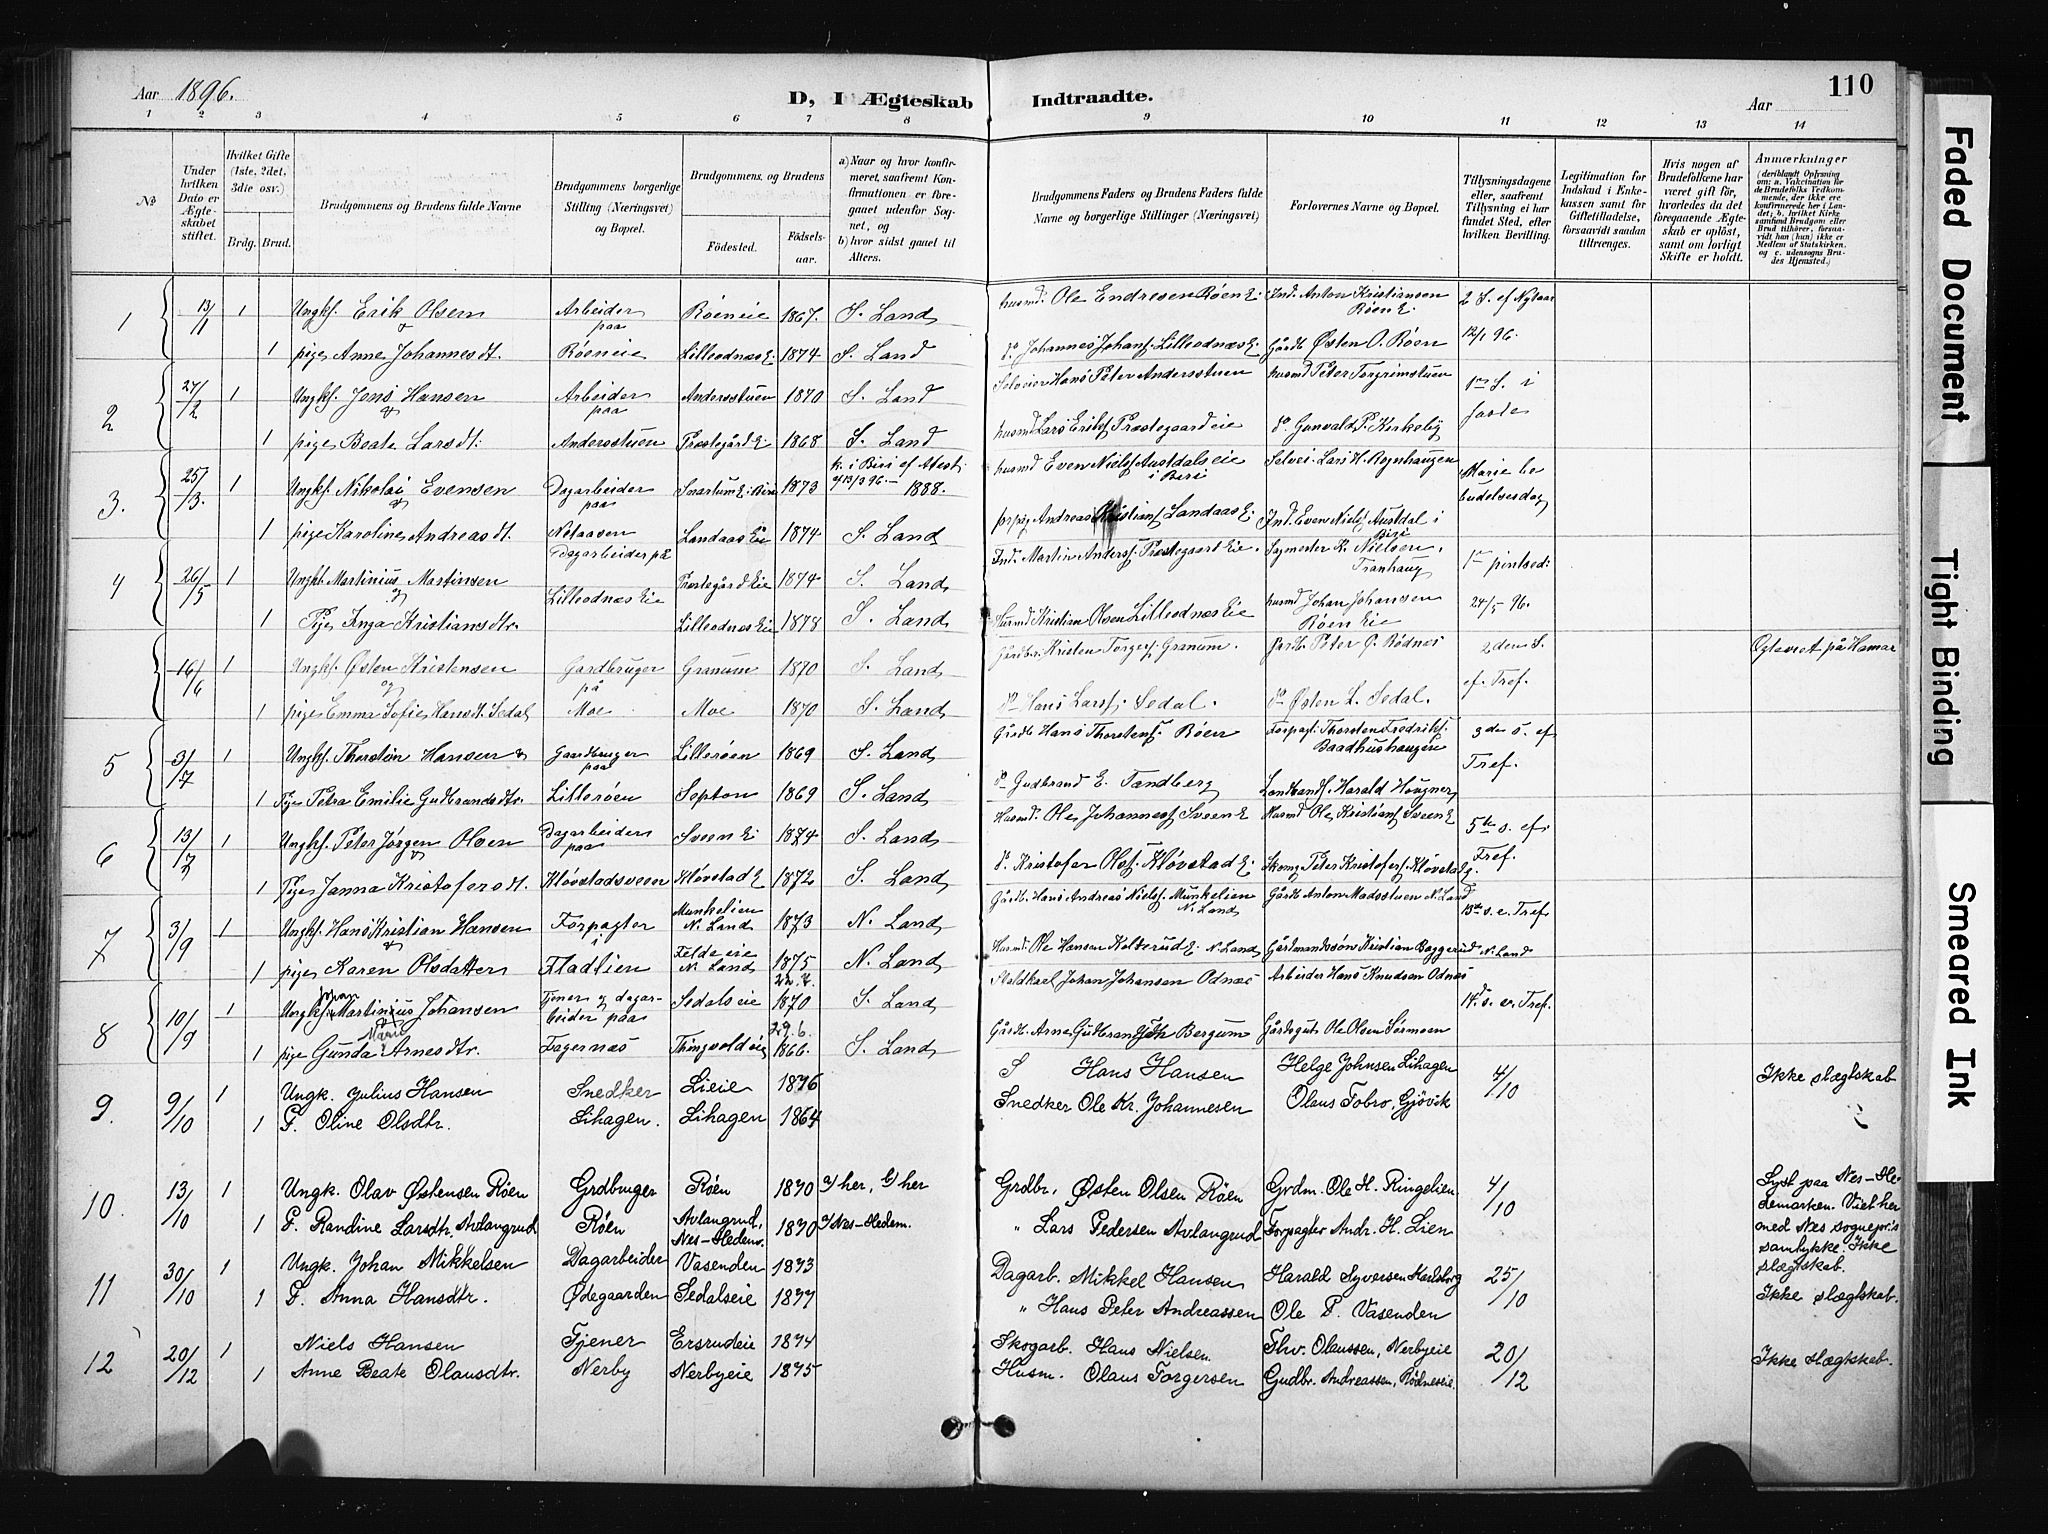 Aar 1896. D, I Ægteskab Indtraadte. Aar 110
1 2 3 4 5 6 7 8 9 10 11 12 13 14
No
Under hvilken Dato er Ægteskabet stiftet.
Hvilket Gifte (1ste, 2det, 3die osv.)
Brdg. Brud.
Brudgommens og Brudens fulde Navne
Brudgommens borgerlige Stilling (Næringsvei) og Bopæl.
Brudgommens, og Brudens
Fødested.
Fødselsaar.
a) Naar og hvor konfirmeret, saafremt Konfirmationen er foregaaet udenfor Sognet, og
b) hvor sidst gaaet til Alters.
Brudgommens Faders og Brudens Faders fulde Navne og borgerlige Stillinger (Næringsvei)
Forlovernes Navne og Bopæl.
Tillysningsdagene eller, saafremt Tillysning ei har fundet Sted, efter hvilken Bevilling.
Legitimation for Indskud i Enkekassen samt for Giftetilladelse, forsaavidt saadan tiltrænges.
Hvis nogen af Brudefolkene har været gift før, hvorledes da det foregaaende Ægteskab er opløst, samt om lovligt Skifte er holdt.
Anmærkninger (deriblandt Oplysning om: a. Vakcination for de Brudefolks Vedkommende, der ikke ere konfirmerede her i Landet; b. hvilket Kirkesamfund Brudgom eller Brud tilhører, forsaavidt han (hun) ikke er Medlem af Statskirken, og c. udensogns Brudes Hjemsted.)
1 13/1 1 Ungkf. Erik Olsen & Arbeider paa Røeneie 1867. S. Land husmd: Ole Endresen Røen E. Ind. Anton Kristiansen Røen E. 2 S. ef Nytaar
1 pige Anne Johannesdt. Røeneie Lilleodnæs E. 1874 S. Land do Johannes Johans. Lilleodnæs E. Gårdb Østen O. Røen 12/1 96.
2 27/2 1 Ungkf. Jens Hansen & Arbeider paa Andersstuen 1870 S. Land Selveier Hans Peter Andersstuen husmd Peter Torgrimstuen 1ste S. i
1 pige Beate Larsdt. Andersstuen Prestegård E. 1868 S. Land husmd Lars Eriks. Præstegaardeie do Gunvald P. Kirkeby faste
3. 25/3. 1 Ungkf. Nikolai Evensen & Dagarbeider paa Snartum E. Biri 1873 k. i Biri ef Atest af 13/3 96. 1888. husmd Even Niels. Austdalseie i Biri Selvei. Lars H. Røjnhaugen Marie be
1 pige Karoline Andreasdt. Landaas Eie 1874 S. Land Andreas Kristians. Landaas E. Ind. Even Niels. Austdal i Biri budelsesdag
4 26/5 1 Ungk. Martinius Martinsen og Dagarbeider på Prestegård Eie 1874 S. Land Ind. Martin Anders. Præstegaard Eie. Sagmester K. Nielsen, Tranhaug 1ste pintsed:
1 Pige Inga Kristiansdtr. Lilleodnæs Eie Lilleodnæs Eie 1878 S. Land Husmd Kristian Olsen Lilleodnæs Eie husmd Johan Johansen Røen Eie 24/5 96.
16/6 1 Ungkf. Østen Kristensen og Gardbruger på Granum 1870 S. Land Gårdbr. Kristen Torgers. Granum. Gårdb. Peter G. Rødnæs 2den S. Oplæst på Hamar
1 pige Emma Sofie Hansdt. Sedal Moe Moe 1870 S. Land do Hans Lars. Sedal. do Østen L. Sedal. ef. Tref.
5 3/7 1 Ungkf. Thorsten Hansen & Gaardbruger paa Lillerøen 1869 S. Land Gårdb Hans Thorstens. Røen Forpagt. Thorsten Fredriks. Baadhushaugen 3die S. ef
1 Pige Petra Emilie Gudbrandsdtr. Lillerøen Sopton 1869 S. Land do Gudbrand E. Tandberg Landhandl. Harald Hougner Tref.
6 13/7 1 Ungkf. Peter Jörgen Olsen & Dagarbeider paa Sveen E. 1874 S. Land Husmd. Ole Johannes. Sveen E. Husmd Ole Kristians. Sveen E 5te s. ef.
1 Pige Janna Kristofersdt. Kløvstadsveen Kløvstad E 1872 S. Land do Kristofer Ols. Kløvstad E. Peter Kristofers. Kløvstad Tref.
7 3/9 1 Ungkf. Hans Kristian Hansen & Forpagter i Munkelien N. Land 1873 N. Land Gårdb. Hans Andreas Niels. Munkelien N. Land Gårdb Anton Madsstuen N. Land 13de s. e. Tref.
1 pige Karen Olsdatter Fladlien N. Land 1875 N. Land Husmd. Ole Hansen Kolterud E. N. Land Gårdmandssøn Kristian Baggerud N. Land
8 10/9 1 Ungkf. Johan Martinius Johansen & Tjener og dagarbeider paa Sedalseie 22.7. 1870 S. Land Staldkarl Johan Johansen Odnæs Arbeider Hans Knudsen Odnæs 14de s. e. Tref.
1 pige Gunda Marie Arnesdtr. Fagernæs Thingvoldeie 29.6. 1866. S. Land Gårdb. Arne Gudbrands. Bergum Gårdsgut Ole Olsen Sørmoen
9. 9/10 1 Ungk. Julius Hansen Snedker Lieie 1876 S Hans Hansen Helge Johnsen Lihagen 4/10 Ikke slægtskab
1 P. Oline Olsdtr. Lihagen. Lihagen 1864 Snedker Ole Kr. Johannesen Olaus Fobro, Gjövik
10. 13/10 1 Ungk. Olav Østensen Røen Grdbruger Røen 1870 a/ her, b/ her Grdbr. Østen Olsen Røen Grdm. Ole H. Ringelien 4/10 Lyst paa Nes-Hedemarken. Viet her med Nes sognepr.s samtykke. Ikke slægtskab.
1 P. Randine Larsdtr. Avlangrud Røen Avlangrud, Nes-Hedem. 1870 a/ Nes-Hedem. " Lars Pedersen Avlangrud Forpagter Andr. H. Lien
11 30/10 1 Ungk. Johan Mikkelsen Dagarbeider Vasenden 1873 Dagarb. Mikkel Hansen Harald Syversen Karlsborg 25/10 Ikke slægtskab.
1 P. Anna Hansdtr. Ødegaarden Sedalseie 1877 " Hans Peter Andreassen Ole P. Vasenden
12 20/12 1 Niels Hansen Tjener Ersrudeie 1874 Skogarb. Hans Nielsen Thv. Olaussen, Nerbyeie 20/12 Ikke slægtskab.
1 Anne Beate Olausdtr. Nerby Nerbyeie 1875 Husm. Olaus Torgersen Gudbr. Andreassen, Rødneseie.
Faded Document
Tight Binding
Smeared Ink